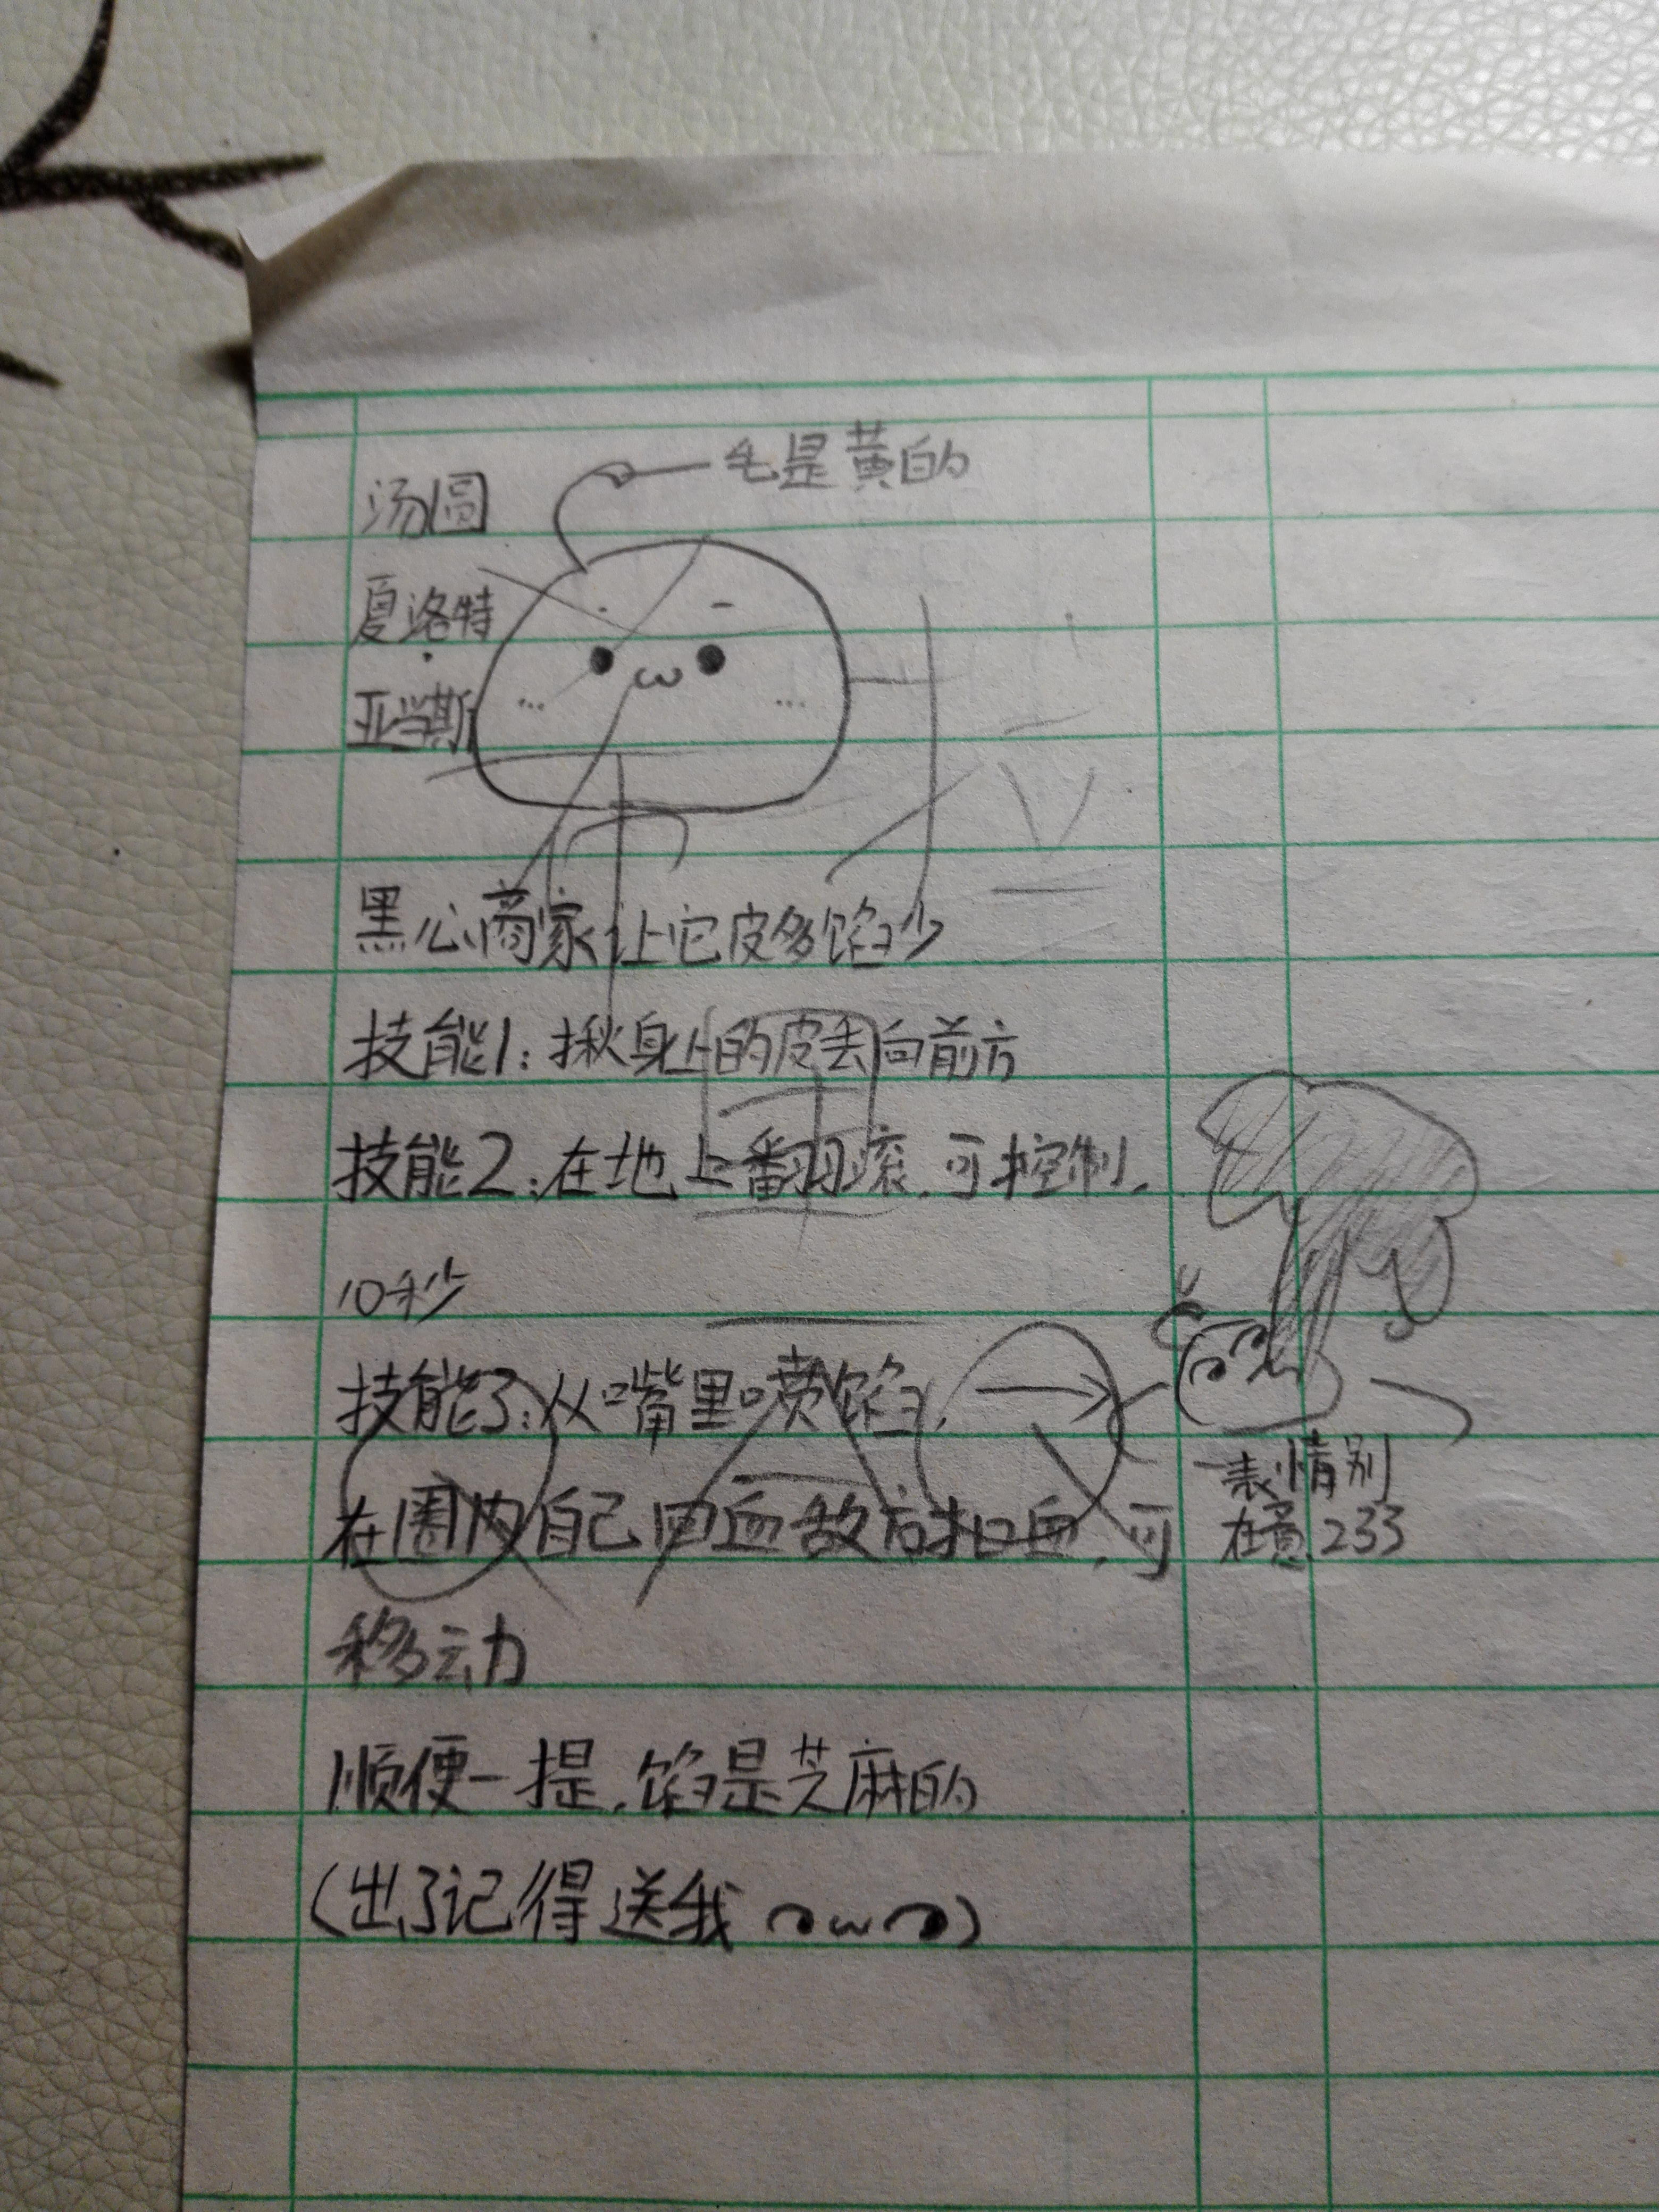 毛是黄的
汤圆
夏洛特
亚当斯
黑心商家让它皮多馅少
技能1:揪身上的皮丢向前方
技能2:在地上翻滚,可控制,
10秒
技能3:从嘴里喷馅,
在圈内自己回血敌方扣血,可
移动
表情别
在意233
顺便一提,馅是芝麻的
(出了记得送我 ω)